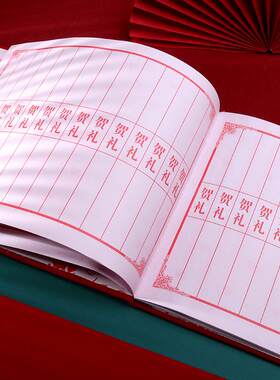 贺礼
贺礼
贺礼
贺礼
贺礼
贺礼
贺礼
贺礼
贺礼
贺礼
贺礼
贺礼
贺礼
贺礼